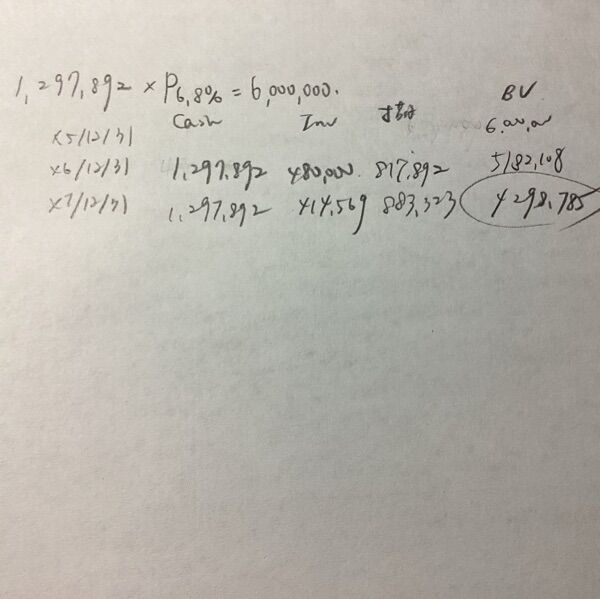 1,297,892 × P6,8% = 6,000,000.
Cash Inv BV
x5/12/31 6,000,000
x6/12/31 1,297,892 480,000 817,892 5182,108
x7/12/31 1,297,892 414,569 883,323 4298,785